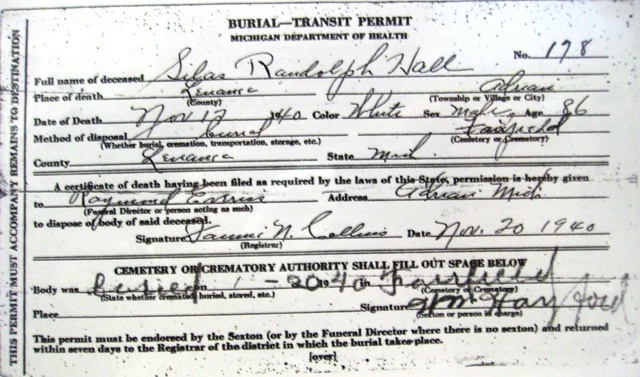 THIS PERMIT MUST ACCOMPANY REMAINS TO DESTINATION
BURIAL—TRANSIT PERMIT
MICHIGAN DEPARTMENT OF HEALTH
No. 178
Full name of deceased Silas Randolph Hall
Place of death Lenawee Adrian
(County) (Township or Village or City)
Date of Death Nov 17 1940 Color White Sex Male Age 86
Method of disposal burial Fairfield
(Whether burial, cremation, transportation, storage, etc.) (Cemetery or Crematory)
County Lenawee State Mich.
A certificate of death having been filed as required by the laws of this State, permission is hereby given
to Raymond Address Adrian Mich
(Funeral Director or person acting as such)
to dispose of body of said deceased.
Signature Collins Date Nov. 20 1940
(Registrar)
CEMETERY OR CREMATORY AUTHORITY SHALL FILL OUT SPACE BELOW
Body was buried on 1 - 20 1940 in Fairfield
(State whether cremated, buried, stored, etc.) (Cemetery or Crematory)
Place Signature Wm Hayford
(Sexton or person in charge)
This permit must be endorsed by the Sexton (or by the Funeral Director where there is no sexton) and returned
within seven days to the Registrar of the district in which the burial takes place.
(over)